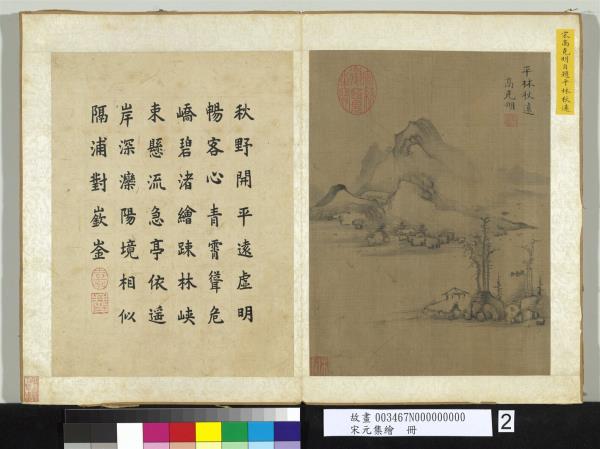 宋高克明自題平林秋遠
平林秋遠
高克明
秋野開平遠虛明
暢客心青霄聳危
嶠碧渚繪疎林峽
束懸流急亭依遥
岸深灤陽境相似
隔浦對嶔崟
故畫 003467N000000000
宋元集繪 冊
2